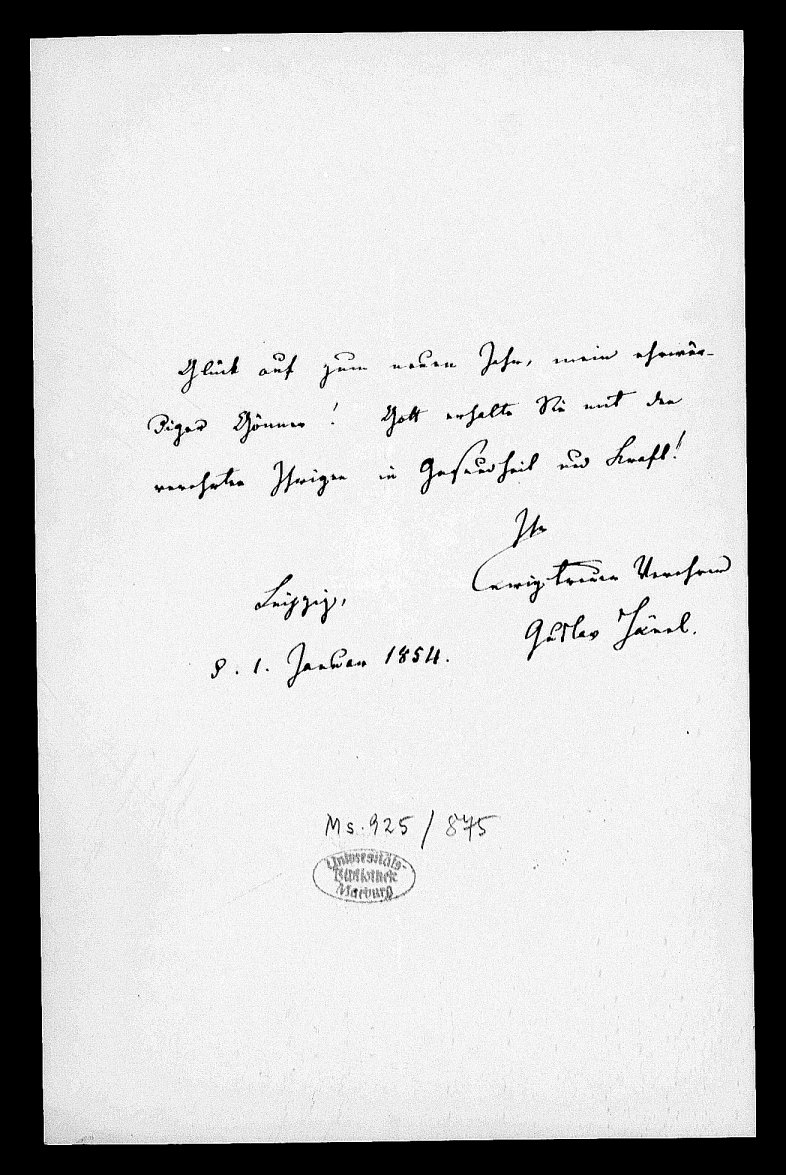 Glück auf zum neuen Jahr, mein ehrwür-
diger Gönner! Gott erhalte Sie mit den
verehrten Ihrigen in Gesundheit und Kraft!
Ihr
ewigtreuer Verehrer
Leipzig,
Gustav Hänel.
d. 1. Januar 1854.
Ms. 925 / 875
Universitäts-
Bibliothek
Marburg